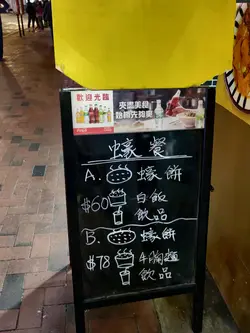 歡迎光臨
夾出美食
蠔餐
A. 蠔餅
$60 白飯
飲品
B. 蠔餅
$78 牛腩麵
飲品